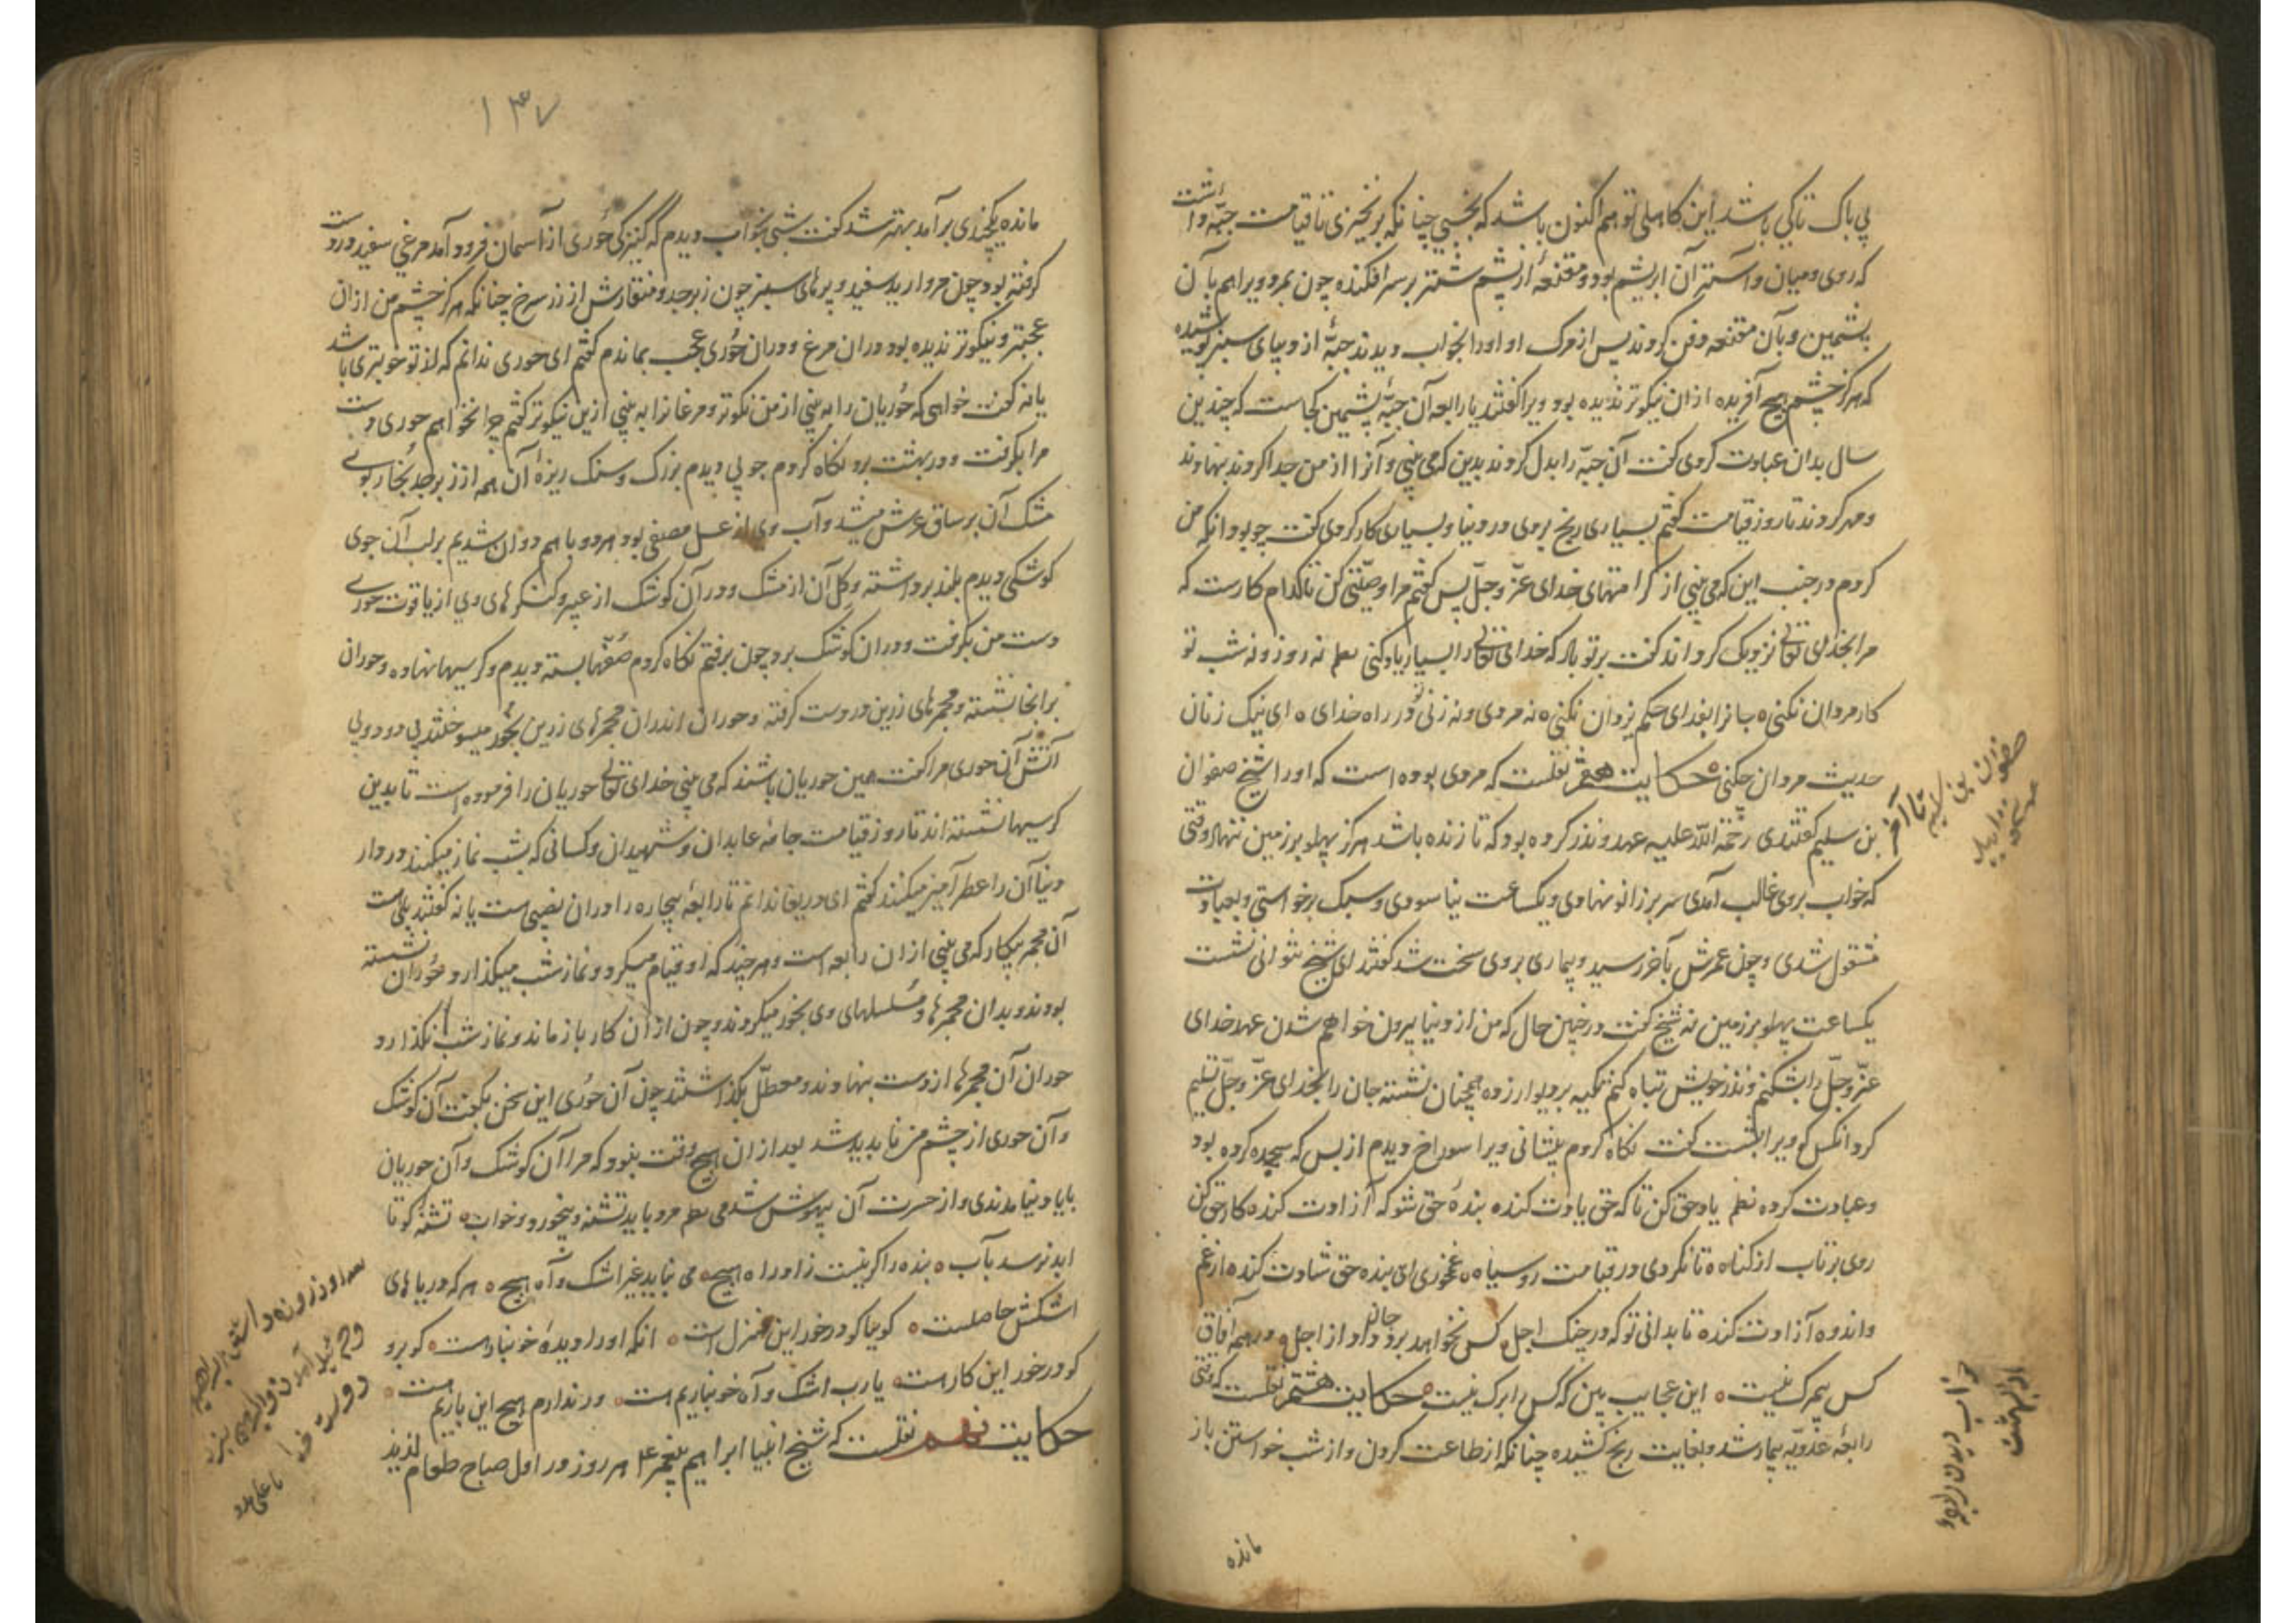 بی باک تا کی باشد این کاهلی تو هم اکنون باشد که بخسبی چنانکه برنخیزی تا قیامت جبّهٔ داشت
که روی و میان و آستر آن ابریشم بود و مقنعهٔ از پشم شتر بر سر افکنده چون بمرد ویرا هم بآن
پشمین و بآن مقنعه دفن کردند پس از مرک او اورا بخواب دیدند جبّهٔ از دیبای سبز پوشیده
که هرکز چشم هیچ آفریده ازان نیکوتر ندیده بود ویرا کفتند یا رابعه آن جبّهٔ پشمین کجاست که چندین
سال بدان عبادت کردی کفت آن جبّه را بدل کردند بدین که می بینی و آنرا از من جدا کردند بنهادند
و مهر کردند تا روز قیامت کفتم بسیاری رنج بردی در دنیا و بسیاری کار کردی کفت چه بود آنکه من
کردم در جنب این که می بینی از کرامتهای خدای عزّ و جلّ پس کفتم مرا وصیّتی کن تا کدام کارست که
مرا بخدای تعالی نزدیک کرداند کفت بر تو باد که خدای تعالی را بسیار یاد کنی نظم نه روز و نه شب تو
کار مردان نکنی ٥ جانرا بفدای حکم یزدان نکنی ٥ نه مردی و نه زنی تو در راه خدای ٥ ای نیک زنان
حدیث مردان چکنی ٥ حکایت هفتم نقلست که مردی بوده است که اورا شیخ صفوان
بن سلیم کفتندی رحمة الله علیه عهد و نذر کرده بود که تا زنده باشد هرکز پهلو بر زمین ننهد و وقتی
که خواب بروی غالب آمدی سر بر زانو نهادی و یکساعت نیاسودی و سبک برخواستی و بعبادت
مشغول شدی و چون عمرش بآخر رسید و بیماری بروی سخت شد کفتند ای شیخ نتوانی نشست
یکساعت پهلو بر زمین نه شیخ کفت در چنین حال که من از دنیا بیرون خواهم شدن عهد خدای
عزّ و جلّ را بشکنم و نذر خویش تباه کنم تکیه بر دیوار زده همچنان نشسته جان را بخدای عزّ و جلّ تسلیم
کرد آنکس کو ویرا بشست کفت نکاه کردم پیشانی ویرا سوراخ دیدم از بس که سجده کرده بود
و عبادت کرده نظم یاد حق کن تا که حق یادت کند ٥ بندهٔ حق شو که آزادت کند ٥ کار حق کن
روی برتاب از کناه ٥ تا نکردی در قیامت رو سیاه ٥ غم خوری ای بنده حق شادت کند ٥ از غم
و اندوه آزادت کند ٥ تا بدانی تو که در جنک اجل کس نخواهد برد جان او از اجل ٥ در همه آفاق
کس بی مرک نیست ٥ این عجایب بین که کس را برک نیست ٥ حکایت هشتم نقلست که وقتی
رابعهٔ عدویّه بیمار شد و بغایت رنج کشیده چنانکه از طاعت کردن و از شب خواستن باز
مانده
صفوان بن سلیم
تا آخر
خواب دیدن رابعه
۱۳۷
مانده یکچندی برآمد بهتر شد کفت شبی بخواب دیدم که کنیزکی حوری از آسمان فرود آمد مرغی سفید در دست
کرفته بود چون مروارید سفید و پرهای سبز چون زبرجد و منقارش از زر سرخ چنانکه هرکز چشم من ازان
عجبتر و نیکوتر ندیده بود دران مرغ و دران حوری عجب بماندم کفتم ای حوری ندانم که از تو خوبتری باشد
یا نه کفت خواهی که حوریان را به بینی از من نکوتر و مرغانرا به بینی ازین نیکوتر کفتم چرا نخواهم حوری دست
مرا بکرفت و در بهشت برد نکاه کردم جویی دیدم بزرک و سنک ریزهٔ آن همه از زبرجد بخار بوی
مشک آن بر ساق عرش میشد و آب وی از عسل مصفی بود هر دو با هم دوان شدیم بر لب آن جوی
کوشکی دیدم بلند برداشته و کل آن از مشک و در آن کوشک از عبیر و کنکرهای وی از یاقوت حوری
دست من بکرفت و دران کوشک برد چون برفتم نکاه کردم صفّها بسته دیدم و کرسیها نهاده و حوران
برانجا نشسته و مجمرهای زرین در دست کرفته و حوران اندران مجمرهای زرین بخور میسوختند بی دود و بی
آتش آن حوری مرا کفت همین حوریان باشند که می بینی خدای تعالی حوریان را فرموده است تا بدین
کرسیها نشسته اند تا روز قیامت جامهٔ عابدان و شهیدان و کسانی که بشب نماز میکنند در دار
دنیا آن را عطر آمیز میکنند کفتم ای دریغا ندانم تا رابعهٔ بیچاره را دران نصیبی است یا نه کفتند بلی است
آن مجمر بیکار که می بینی ازان رابعه است و هر چند که او قیام میکرد و نماز شب میکذارد حوران نشسته
بودند و بدان مجمرها و مسلسلهای وی بخور میکردند و چون ازان کار باز ماند و نماز شب نکذارد
حوران آن مجمرها از دست بنهادند و معطّل بکذاشتند چون آن حوری این سخن بکفت آن کوشک
و آن حوری از چشم من ناپدید شد بعد ازان هیچ وقت نبود که مرا آن کوشک و آن حوریان
با یاد نیامدندی و از حسرت آن بیهوش شدمی نظم مرد باید تشنه و بیخورد و خواب ٥ تشنه کو تا
ابد نرسد بآب ٥ بنده را کر نیست زاد راه هیچ ٥ می نباید غیر اشک و آه هیچ ٥ هر که دریاهای
اشکش حاصلست ٥ کو بیا کو در خور این منزل است ٥ آنکه اورا دیدهٔ خونبارست ٥ کو برو
کو در خور این کارست ٥ یارب اشک و آه خونباریم هست ٥ ور ندارم هیچ این باریم هست ٥
حکایت نهم نقلست که شیخ انبیا ابراهیم پیغمبر ع م هر روز در اول صباح طعام لذیذ